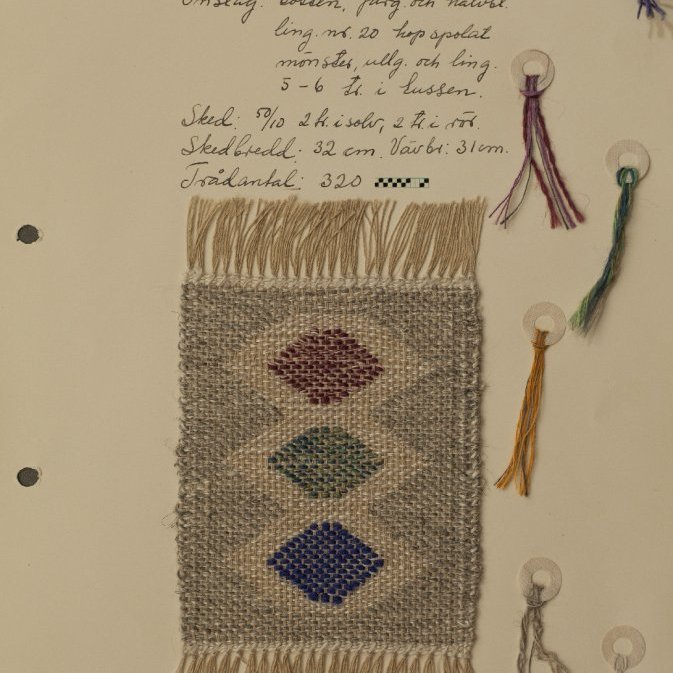 Inslag: Tussen, färg. och halvbl.
ling. nr. 20 hopspolat
mönster, ullg. och ling.
5 - 6 tr. i tussen.
Sked: 50/10 2 tr. i solv, 2 tr. i rör.
Skedbredd: 32 cm. Vävbr: 31 cm.
Trådantal: 320